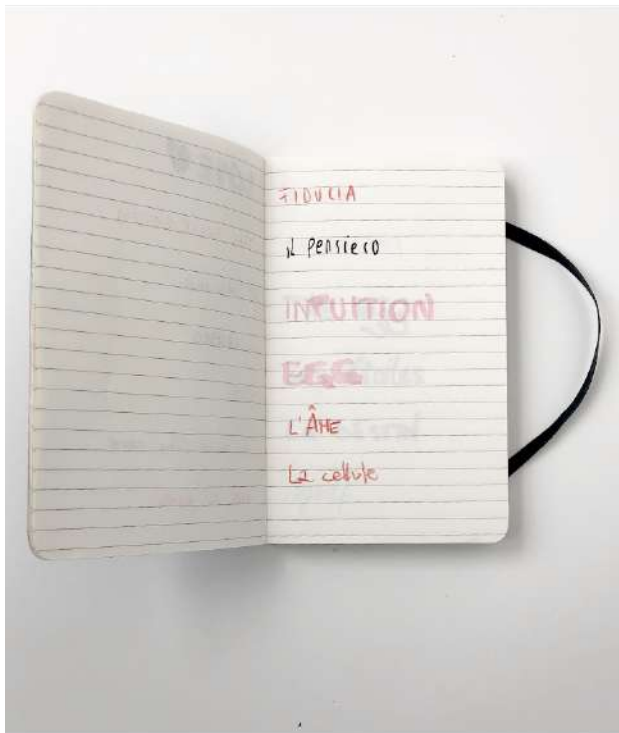 FIDUCIA
il pensiero
INTUITION
EGG
L'ÂME
La cellule